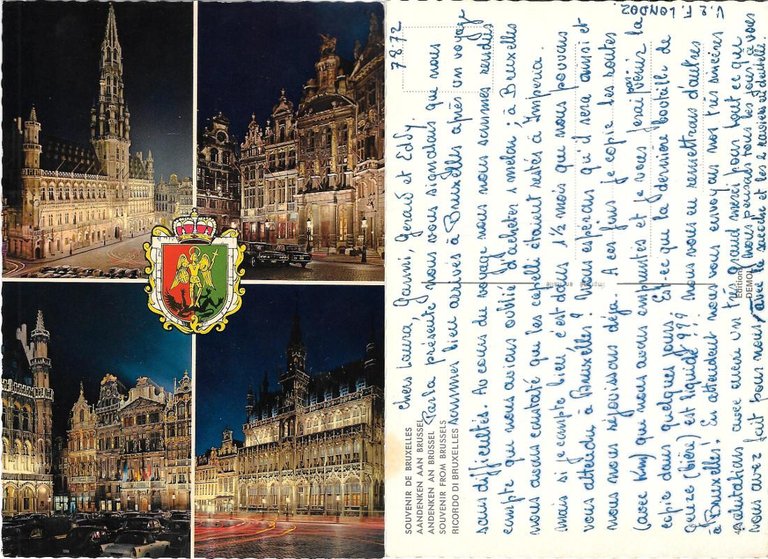 7.8.72
Chers Laura, Ganni, Gerard et Eddy.
Par la présente nous vous signalons que nous
sommes bien arrivés à Bruxelles après un voyage
sans difficultés. Au cours du voyage nous nous sommes rendus
compte que nous avions oublié d'acheter 1 melon ; à Bruxelles
nous avons constaté que les capelli étaient restés à Imperia.
mais si je compte bien, c'est dans 1½ mois que nous pouvons
vous attendre à Bruxelles ? Nous espérons qu'il sera ainsi et
nous nous réjouissons déjà. A ces fins je copie les routes
(avec km) que nous avons empruntées et je vous ferai parvenir la
copie dans quelques jours. Est-ce que la dernière bouteille de
gueuze (bière) est liquidé ??? Nous vous en remettrons d'autres
à Bruxelles. En attendant nous vous envoyons nos très sincères
salutations avec encore un très grand merci pour tout ce que
vous avez fait pour nous (nous pensons tous les jours à vous
avec le
V.E.F. LONDOZ.
SOUVENIR DE BRUXELLES
AANDENKEN AAN BRUSSEL
ANDENKEN AN BRÜSSEL
SOUVENIR FROM BRUSSELS
RICORDO DI BRUXELLES
Editions
DEMOL